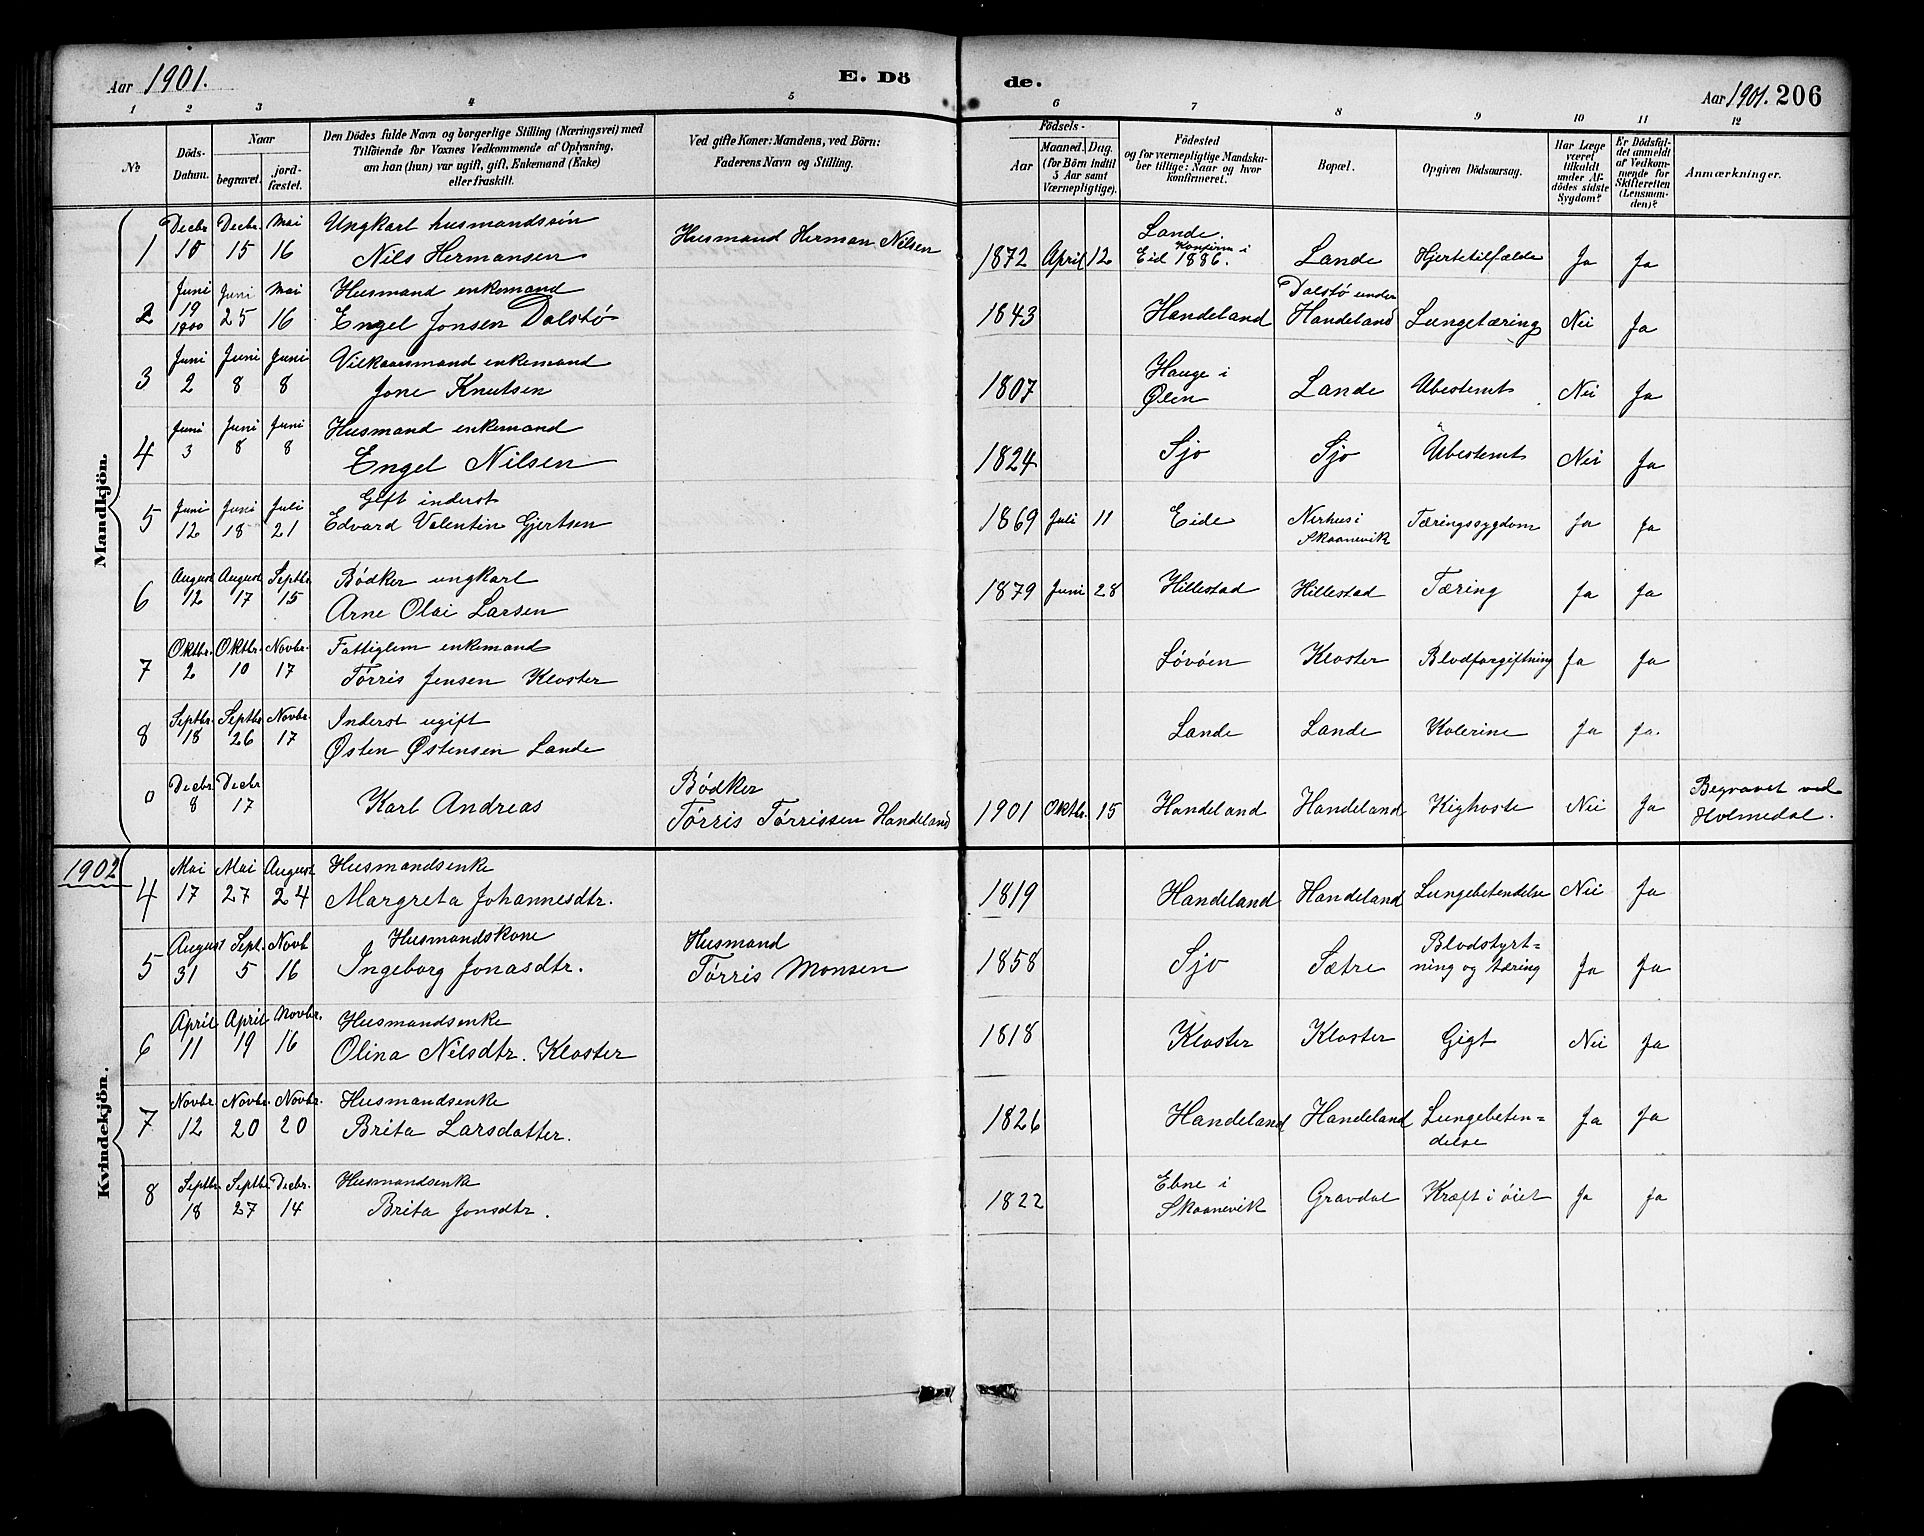 Aar 1901.
E. Dö
de.
Aar 1901. 206
1 2 3 4 5 6 7 8 9 10 11 12
No
Döds-Datum.
Naar
begravet.
jord-fæstet.
Den Dödes fulde Navn og borgerlige Stilling (Næringsvei) med
Tilföiende for Voxnes Vedkommende af Oplysning,
om han (hun) var ugift, gift, Enkemand (Enke)
eller fraskilt.
Ved gifte Koner: Mandens, ved Börn:
Faderens Navn og Stilling.
Födsels-
Aar
Maaned. Dag.
(for Börn indtil
5 Aar samt
Værnepligtige).
Födested
og for værnepligtige Mandska-
ber tillige: Naar og hvor
konfirmeret.
Bopæl.
Opgiven Dödsaarsag.
Har Læge
været
tilkaldt
under Af-
dödes sidste
Sygdom?
Er Dödsfal-
det anmeldt
af Vedkom-
mende for
Skifteretten
(Lensman-
den)?
Anmærkninger.
Mandkjön.
Decbr. Decbr. Mai Ungkarl husmandssön
1 10 15 16 Nils Hermansen Husmand Herman Nilsen 1872 April 12 Lande. Konfirm i Eid 1886. Lande Hjertetilfælde Ja Ja
Juni Juni Mai Husmand enkemand
2 19 1900 25 16 Engel Jonsen Dalstø 1843 Handeland Dalstø under Handeland Lungetæring Nei Ja
Juni Juni Juni Vilkaarsmand enkemand
3 2 8 8 Jone Knutsen 1807 Hauge i Ølen Lande Ubestemt Nei Ja
Juni Juni Juni Husmand enkemand
4 3 8 8 Engel Nilsen 1824 Sjo Sjo Ubestemt Nei Ja
Juni Juni Juli Gift inderst
5 12 18 21 Edvard Valentin Gjertsen 1869 Juli 11 Eide Nerhus i Skaanevik Tæringssygdom Ja Ja
August August Septbr. Bødker ungkarl
6 12 17 15 Arne Olai Larsen 1879 Juni 28 Hillestad Hillestad Tæring Ja Ja
Oktbr. Oktbr. Novbr. Fattiglem enkemand
7 2 10 17 Tørris Jensen Kloster Løvøen Kloster Blodforgiftning Ja Ja
Septbr. Septbr. Novbr. Inderst ugift
8 18 26 17 Østen Østensen Lande Lande Lande Kolerine Ja Ja.
Decbr Decbr Bødker
0 8 17 Karl Andreas Tørris Tørrissen Handeland 1901 Oktbr. 15 Handeland Handeland Kighoste Nei Ja Begravet ved Holmedal.
1902
Kvindekjön.
Mai Mai August Husmandsenke
4 17 27 24 Margreta Johannesdtr. 1819 Handeland Handeland Lungebetendelse Nei Ja
August Sept. Novb Husmandskone Husmand
5 31 5 16 Ingeborg Jonasdtr. Tørris Monsen 1858 Sjo Sætre Blodstyrt=
ning og tæring Ja Ja
April April Novbr. Husmandsenke
6 11 19 16 Olina Nilsdtr. Kloster 1818 Kloster Kloster Gigt Nei Ja
Novbr. Novbr. Novbr. Husmandsenke
7 12 20 20 Brita Larsdatter. 1826 Handeland Handeland Lungebeten=
delse Ja Ja
Septbr. Septbr. Decbr. Husmandsenke
8 18 27 14 Brita Jonsdtr. 1822 Ebne i Skaanevik Gravdal Kræft i øiet Ja Ja